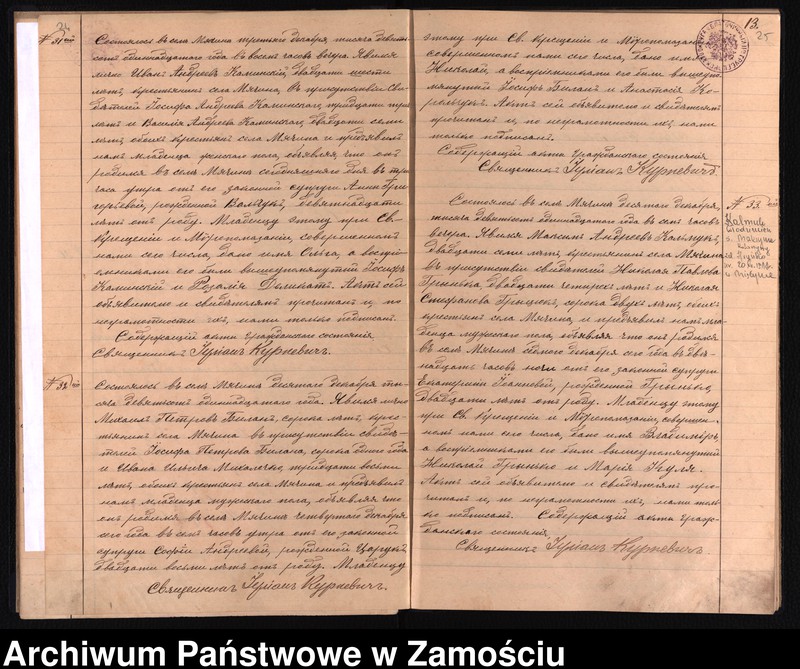 24
№ 31ый
Состоялось въ селѣ Мячина третьяго декабря, тысяча девять-
сотъ одиннадцатаго года въ восемь часовъ вечера. Явился
лично Иванъ Андреевъ Калинскій, двадцати шести
лѣтъ, крестьянинъ села Мячина, въ присутствіи Сви-
дѣтелей Іосифа Андреева Калинскаго, тридцати трехъ
лѣтъ и Василія Андреева Калинскаго, двадцати семи
лѣтъ, обоихъ крестьянъ села Мячина и предъявилъ
намъ младенца женскаго пола, объявляя что онъ
родился въ селѣ Мячина сегодняшняго дня въ три
часа утра отъ его законной супруги Анны Гри-
горьевой, рожденной девятнадцати
лѣтъ отъ роду. Младенцу этому при Св.
Крещеніи и Мѵропомазаніи, совершенномъ
нами сего числа, дано имя Ольга, а воспрі-
емниками его были вышеупомянутый Іосифъ
Калинскій и Розалія Актъ сей
объявителю и свидѣтелямъ прочитанъ и, по
неграмотности ихъ, нами только подписанъ.
Содержащій акты гражданскаго состоянія
Священникъ Іуліанъ Курневичъ.
№ 32ой
Состоялось въ селѣ Мячина десятаго декабря ты-
сяча девятьсотъ одиннадцатаго года. Явился лично
Михаилъ Петровъ Билантъ, сорока лѣтъ, крес-
тьянинъ села Мячина въ присутствіи свидѣ-
телей Іосифа Петрова Биланта, сорока одного года
и Ивана Ильича Миколочко, тридцати восьми
лѣтъ, обоихъ крестьянъ села Мячина и предъявилъ
намъ младенца мужескаго пола, объявляя что
онъ родился въ селѣ Мячина четвертаго декабря
сего года въ семь часовъ утра отъ его законной
супруги Софіи Андреевой, рожденной
двадцати восьми лѣтъ отъ роду. Младенцу
Священникъ Іуліанъ Курневичъ.
13.
25
этому при Св. крещеніи и Мѵропомазаніи
совершенномъ нами сего числа, дано имя
Николай, а воспріемниками его были вышеупо-
мянутый Іосифъ Билантъ и Анастасія Ко-
рольчукъ. Актъ сей объявителю и свидѣтелямъ
прочитанъ и, по неграмотности ихъ, нами
только подписанъ.
Содержащій акты гражданскаго состоянія
Священникъ Іуліанъ Курневичъ.
№ 33ій
Состоялось въ селѣ Мячина десятаго декабря,
тысяча девятьсотъ одиннадцатаго года въ семь часовъ
вечера. Явился Максимъ Андреевъ Калмукъ,
двадцати семи лѣтъ, крестьянинъ села Мячина
въ присутствіи свидѣтелей Николая Павлова
Гринько, двадцати четырехъ лѣтъ и Николая
Стефанова Грицюкъ, сорока двухъ лѣтъ, обоихъ
крестьянъ села Мячина, и предъявилъ намъ мла-
денца мужескаго пола, объявляя что онъ родился
въ селѣ Мячина седьмого декабря сего года въ две-
надцать часовъ ночи отъ его законной супруги
Екатерины Іоанновой, рожденной Гринько,
двадцати лѣтъ отъ роду. Младенцу этому
при Св. Крещеніи и Мѵропомазаніи, совершен-
номъ нами сего числа, дано имя Владиміръ,
а воспріемниками его были вышеупомянутый
Николай Гринько и Марія Куля.
Актъ сей объявителю и свидѣтелямъ про-
читанъ и, по неграмотности ихъ, нами толь-
ко подписанъ. Содержащій акты граж-
данскаго состоянія,
Священникъ Іуліанъ Курневичъ
Archiwum Państwowe w Zamościu